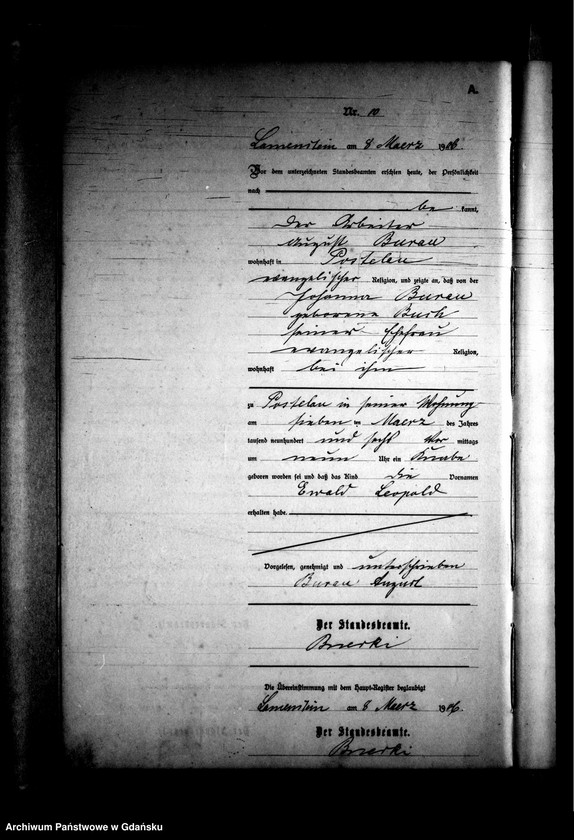 A.
Nr. 10
Lamenstein am 8 Maerz 1906.
Vor dem unterzeichneten Standesbeamten erschien heute, der Persönlichkeit
nach
be kannt,
der Arbeiter
August Burau
wohnhaft in Postelau
evangelischer Religion, und zeigte an, daß von der
Johanna Burau
geborene Bush
seiner Ehefrau
evangelischer Religion,
wohnhaft bei ihm
zu Postelau in seiner Wohnung
am sieben ten Maerz des Jahres
tausend neunhundert und sechs Vor mittags
um neun Uhr ein Knabe
geboren worden sei und daß das Kind die Vornamen
Ewald Leopold
erhalten habe.
Vorgelesen, genehmigt und unterschrieben
Burau August
Der Standesbeamte.
Die Übereinstimmung mit dem Haupt-Register beglaubigt
Lamenstein am 8 Maerz 1906.
Der Standesbeamte.
Archiwum Państwowe w Gdańsku